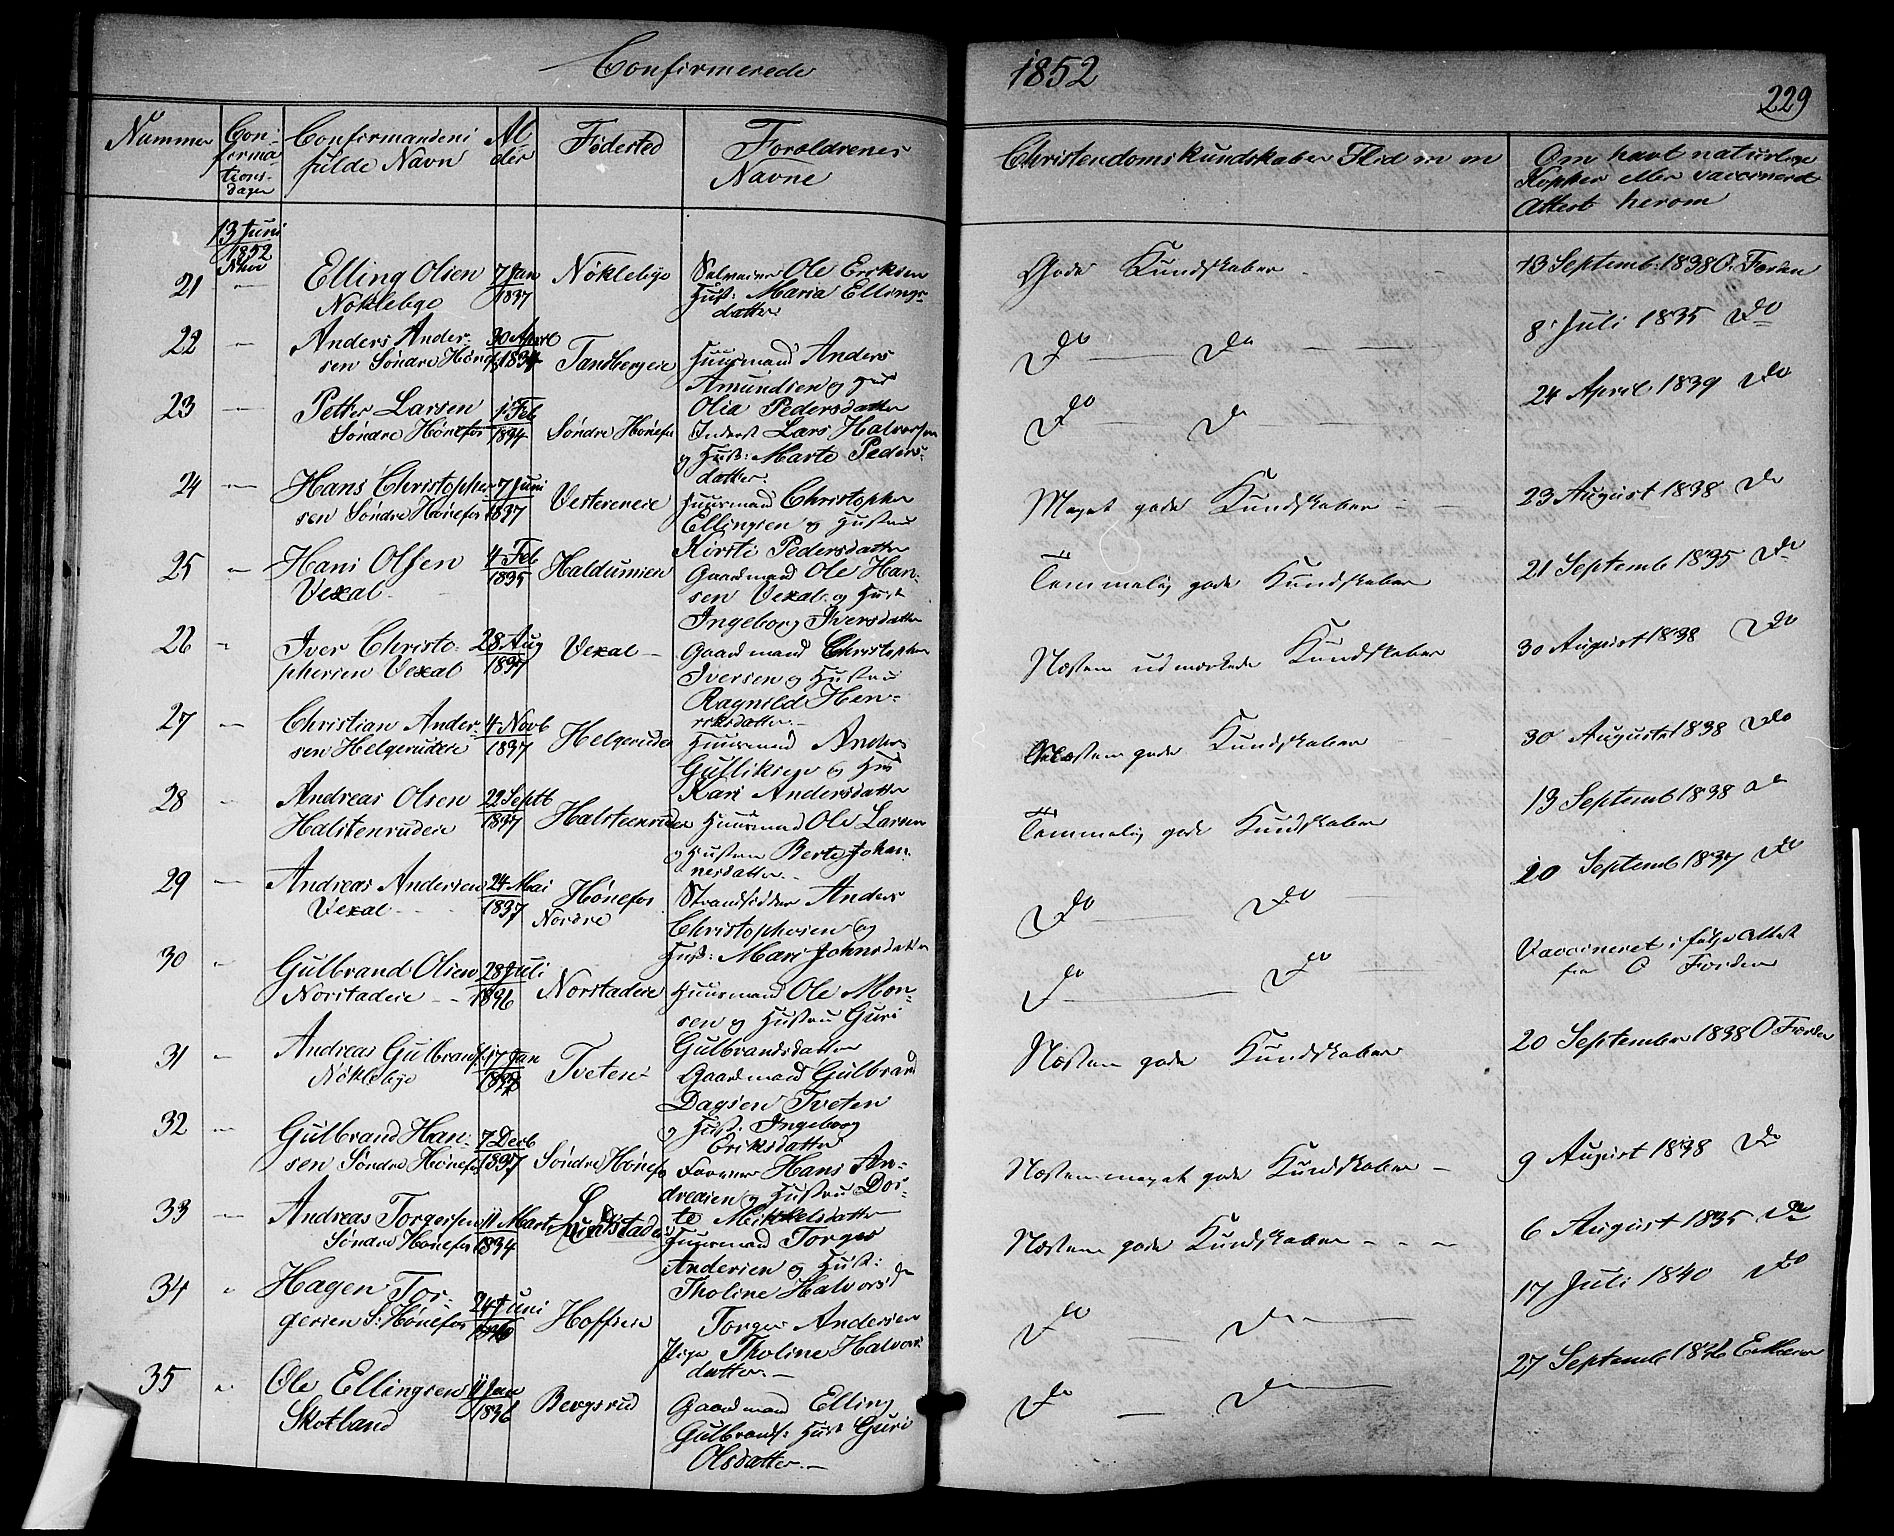 Confirmerede
1852
229
Nummer
Con-
firma-
tions-
dagen
Confirmandens
fulde Navn
Al-
der
Fødested
Foreldrenes
Navne
Christendomskundskaber Flid m m
Om havt naturlige
Kopper eller vaccinered
Attest herom
13 Juni
1852
21
Elling Olsen
Noklebye
7 Jan
1837
Nøklebye
Ole Ericksen
Hust: Maria Ellings-
datter
Gode Kundskaber
13 Septemb: 1838 O. Førden
22
Anders Ander-
sen Søndre Hønef.
30 April
1834
Tandbergeie
Huusmand Anders
Amundsen og Hus
Olia Pedersdatter
Do Do
8 Juli 1835 Do
23
Petter Larsen
Søndre Hønefos
1 Feb
1834
Søndre Hønefos
Inderst Lars Halvorsen
og Hust: Marte Peders-
datter
Do Do
24 April 1839 Do
24
Hans Christopher-
sen Søndre Hønefos
7 Juni
1837
Vestereneie
Huusmand Christopher
Ellingsen og Hustru
Kirsti Pedersdatter
Meget gode Kundskaber
23 August 1838 Do
25
Hans Olsen
Vexal
4 Feb
1835
Gaardmand Ole Han-
sen Vexal og Hust
Ingeborg Iversdatter
Temmelig gode Kundskaber
21 Septemb 1835 Do
26
Iver Christo-
phersen Vexal
28 Aug
1837
Vexal
Gaardmand Christopher
Iversen og Hustru
Ragnild Hen-
riksdatter
Næsten udmerkede Kundskaber
30 August 1838 Do
27
Christian Ander-
sen Helgerudeie
4 Novb
1837
Helgerudeie
Huusmand Anders
Gulliksen og Hus
Kari Andersdatter
Næsten gode Kundskaber
30 August 1838 Do
28
Andreas Olsen
Halstenrudeie
22 Septb
1837
Halsteenrudeie
Huusmand Ole Larsen
og Hustru Berte Johan-
nesdatter
Temmelig gode Kundskaber
13 Septemb 1838 do
29
Andreas Andersen
Vexal
24 Mai
1837
Hønefos
Nordre
Strandsidder Anders
Christophersen og
Hust: Mari Johnsdatter
Do Do
20 Septemb 1837 Do
30
Gulbrand Olsen
Norstadeie
28 Juli
1836
Norstadeie
Huusmand Ole Mon-
sen og Hustru Guri
Gulbrandsdatter
Do Do
Vaccineret ifølge Attest
fra O Førden
31
Andreas Gulbrands.
Nöklebye
17 Jan
Tveten
Gaardmand Gulbrand
Dagsen Tveten
og Hust: Ingeborg
Eriksdatter
Næsten gode Kundskaber
20 September 1838 O Førden
32
Gulbrand Han-
sen Søndre Hønefos
7 Decb
1837
Søndre Hønefos
Hans An-
dreasen og Hustru Dor-
te Mikkelsdatter
Næsten meget gode Kundskaber
9 August 1838 Do
33
Andreas Torgersen
Søndre Hønefos
11 Marts
1834
Lundstadeie
Huusmand Torger
Andersen og Hust:
Tholine Halvorsd
Næsten gode Kundskaber
6 August 1835 Do
34
Hagen Tor-
gersen S: Hønefos
24 Juni
Hofseie
Torger Andersen
Pige Tholine Halvors
datter
Do Do
17 Juli 1840 Do
35
Ole Ellingsen
Skotland
11 Jan
1836
Bergsrud
Gaardmand Elling
Gulbrands: Hust Guri
Olsdatter
Do Do
27 Septemb